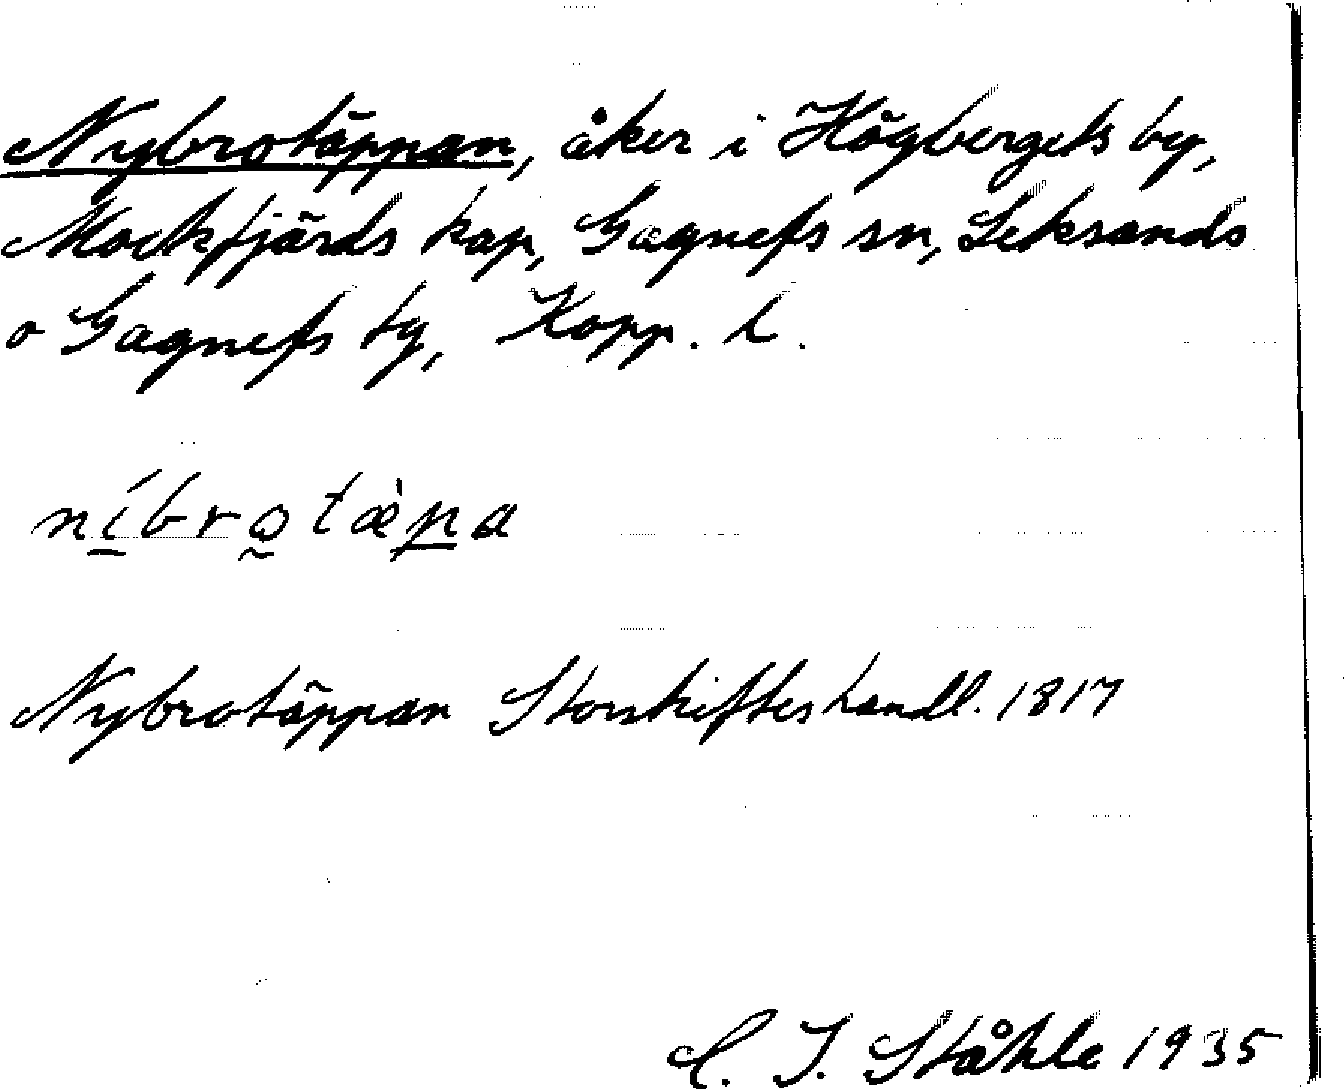 Nybrotäppan, åker i Högbergets by,
Mockfjärds kap, Gagnefs sn, Leksands
o Gagnefs tg, Kopp. l.
níbro̰tæ̀pa
Nybrotäppan Storskifteshandl. 1817
C. I. Ståhle 1935